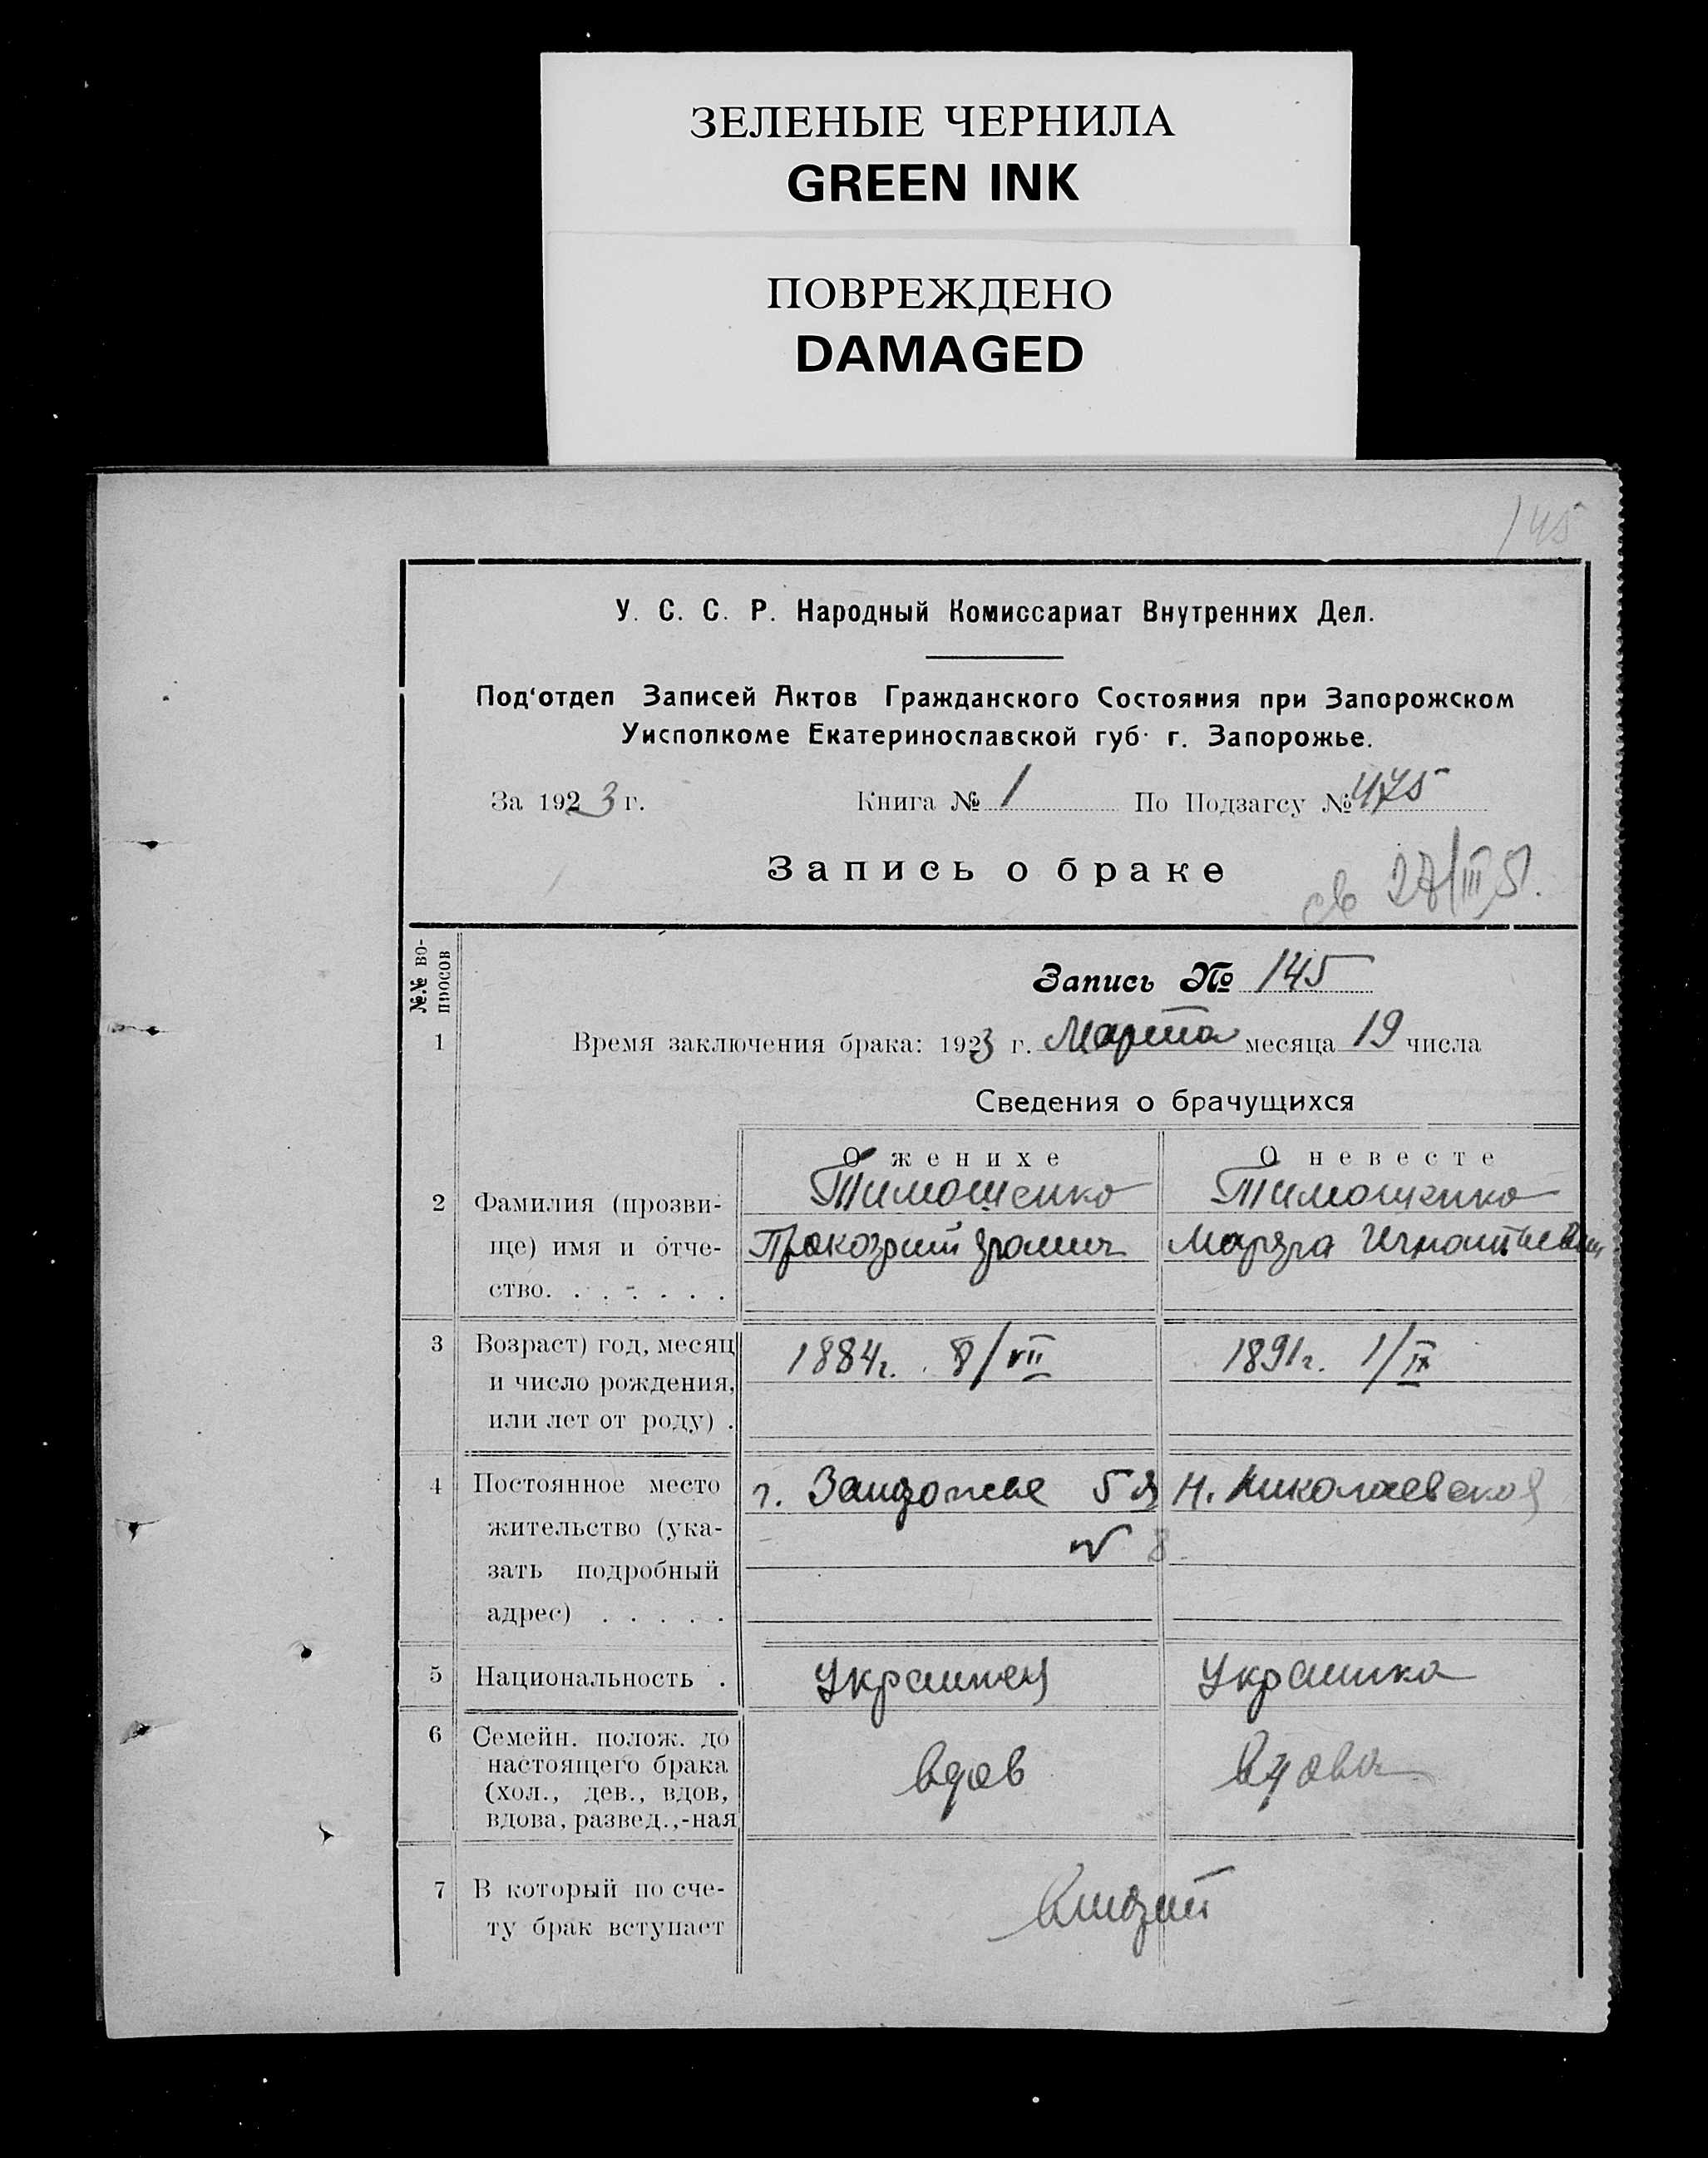 ЗЕЛЕНЫЕ ЧЕРНИЛА
GREEN INK
ПОВРЕЖДЕНО
DAMAGED
145
У. С. С. Р. Народный Комиссариат Внутренних Дел.
Под'отдел Записей Актов Гражданского Состояния при Запорожском
Уисполкоме Екатеринославской губ. г. Запорожье.
За 1923 г. Книга № 1 По Подзагсу № 475
Запись о браке
св 27/III 51.
№.№ во-
просов
Запись № 145
1 Время заключения брака: 1923 г. Марта месяца 19 числа
Сведения о брачущихся
О женихе О невесте
2 Фамилия (прозви- Тимошенко Тимошенко
ще) имя и отче- Марфа
ство. . . . . . .
3 Возраст) год, месяц 1884г. 8/VII 1891г. 1/IX
и число рождения,
или лет от роду) .
4 Постоянное место г. 5 Н. Николаевской
жительство (ука- № 8
зать подробный
адрес) . . . . .
5 Национальность . Украинец Украинка
6 Семейн. полож. до
настоящего брака вдов вдова
(хол., дев., вдов,
вдова, развед.,-ная
7 В который по сче- второй
ту брак вступает